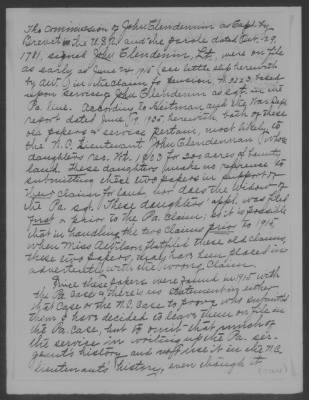 The commission of John Clendennin as Capt. by
Brevet in the U.S. and the parole dated Oct. 29,
1781, signed John Clendenin, Lt., were on file
as early as June 24, 1915 (see little slip herewith
by AW.) in the claim for pension, based
upon service of John Clendenin as sgt. in the
Pa. line. According to Heitman and the War Dept.
report dated June 1935, herewith, both of these
old papers & service pertain, most likely to
the N.C. Lieutenant John Clendennan (whose
daughters rec. Wt. for 200 acres of bounty
land. These daughters make no reference to
submitting these two papers in support of
their claim for land, nor does the widow of
the Pa. sgt. These daughters' appl. was filed
first & prior to the Pa. claim; so it is possible
that in handling the two claims prior to 1915
when Miss flatfiled these old claims,
these two papers, may have been placed in
advertently with the wrong claim.
Since these papers were found in 1915 with
the Pa. case & there is no statement in either
that case or the N.C. case to prove who submitted
them I have decided to leave them on file in
the Pa. case, but to omit that much of
the service in writing up the Pa. ser-
geant's history and not use it in the N.C.
lieutenant's history, even though it
(over)